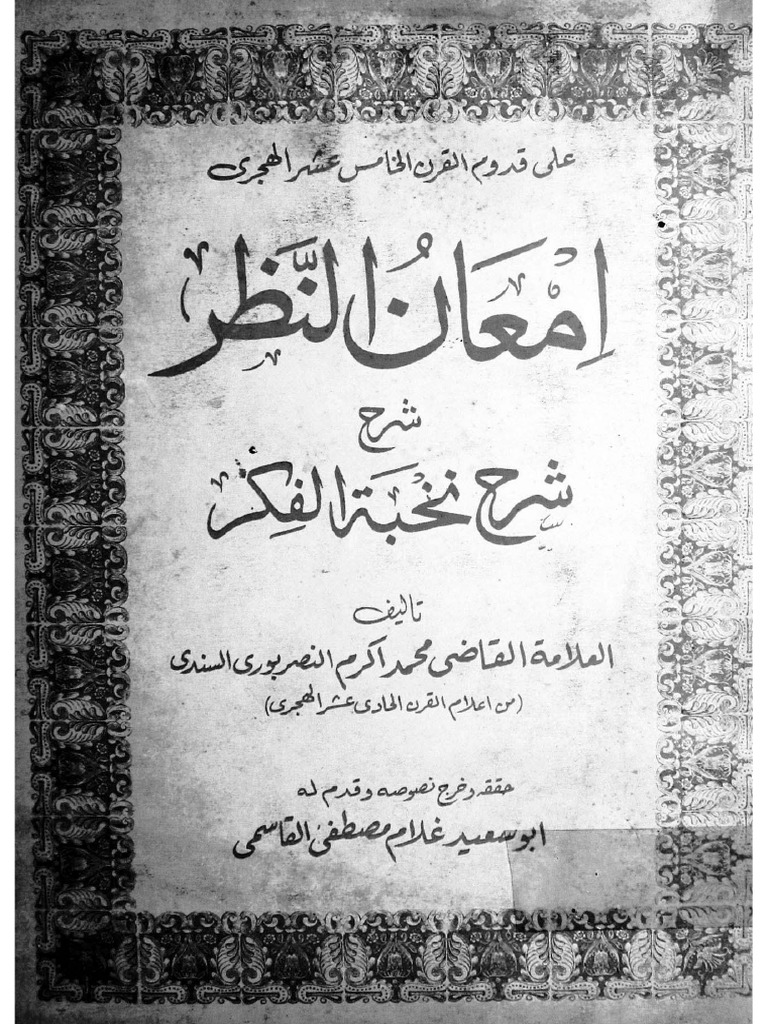 على قدوم القرن الخامس عشر الهجرى
اِمْعَانُ النَّظَر
شرح
شرح نخْبَة الفِكَر
تاليف
العلامة القاضى محمد اكرم النصربورى السندى
(من اعلام القرن الحادى عشر الهجرى)
حققه وخرج نصوصه وقدم له
ابو سعيد غلام مصطفىٰ القاسمى